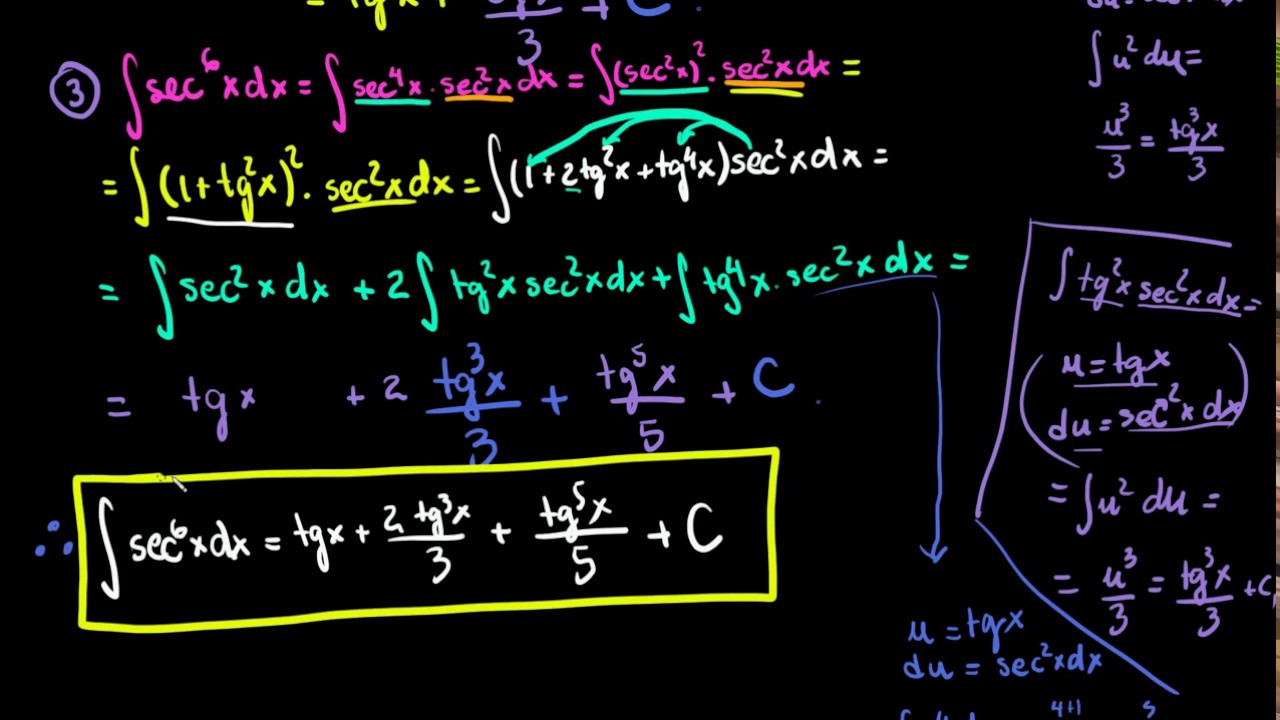 = tgx + 3 + C.
③ ∫sec⁶xdx = ∫sec⁴x · sec²x dx = ∫(sec²x)² · sec²xdx =
= ∫(1+tg²x)² · sec²xdx = ∫(1+2tg²x+tg⁴x)sec²xdx =
= ∫sec²xdx + 2∫tg²x sec²xdx + ∫tg⁴x · sec²x dx =
= tgx + 2 tg³x/3 + tg⁵x/5 + C.
∴ ∫sec⁶xdx = tgx + 2tg³x/3 + tg⁵x/5 + C
∫u²du =
u³/3 = tg³x/3
∫tg²x sec²xdx =
(u = tgx
du = sec²x dx)
= ∫u² du =
= u³/3 = tg³x/3 + C,
u = tgx
du = sec²xdx
4+1 5